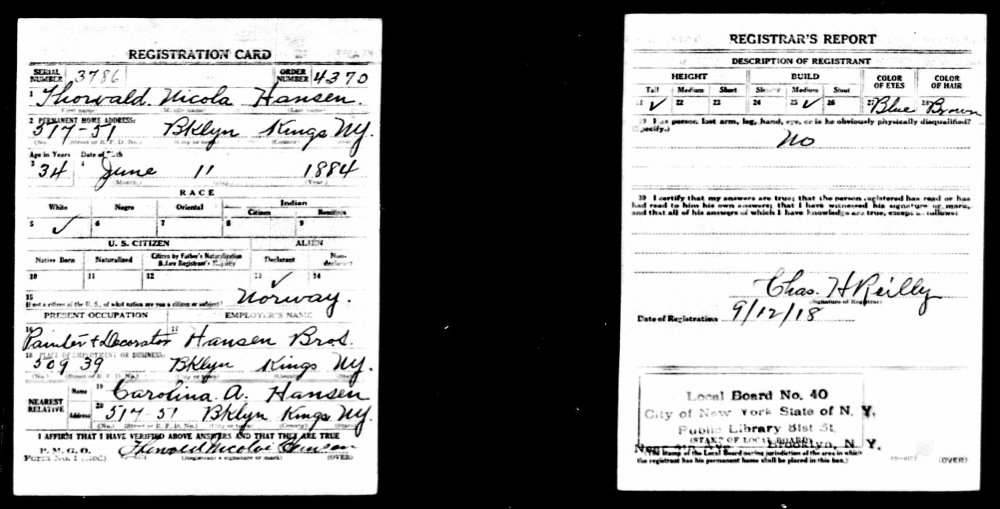 REGISTRATION CARD
SERIAL NUMBER 3786 ORDER NUMBER 4370
1 Thorwald. Nicola Hansen.
(First name) (Middle name) (Last name)
2 PERMANENT HOME ADDRESS:
517-51 Bklyn Kings NY.
(No.) (Street or R. F. D. No.) (City or town) (County) (State)
Age in Years Date of Birth
3 34 4 June 11 1884
(Month.) (Day.) (Year.)
RACE
White Negro Oriental Indian
Citizen Noncitizen
5 ✓ 6 7 8 9
U. S. CITIZEN ALIEN
Native Born Naturalized Citizen by Father's Naturalization Before Registrant's Majority Declarant Non-declarant
10 11 12 13 ✓ 14
15 If not a citizen of the U. S., of what nation are you a citizen or subject? Norway.
PRESENT OCCUPATION EMPLOYER'S NAME
16 Painter + Decorator 17 Hansen Bros.
18 PLACE OF EMPLOYMENT OR BUSINESS:
509 39 Bklyn Kings NY.
(No.) (Street or R. F. D. No.) (City or town) (County) (State)
NEAREST RELATIVE Name 19 Carolina A. Hansen
Address 20 517-51 Bklyn Kings NY
(No.) (Street or R. F. D. No.) (City or town) (County) (State)
I AFFIRM THAT I HAVE VERIFIED ABOVE ANSWERS AND THAT THEY ARE TRUE
P. M. G. O.
Form No. 1 (Red) Thorvald Nicolai Hansen
(Registrant's signature or mark) (OVER)
REGISTRAR'S REPORT
DESCRIPTION OF REGISTRANT
HEIGHT BUILD COLOR OF EYES COLOR OF HAIR
Tall Medium Short Slender Medium Stout
21 ✓ 22 23 24 25 ✓ 26 27 Blue 28 Brown
29 Has person lost arm, leg, hand, eye, or is he obviously physically disqualified?
(Specify.)
No
30 I certify that my answers are true; that the person registered has read or has
had read to him his own answers; that I have witnessed his signature or mark,
and that all of his answers of which I have knowledge are true, except as follows:
Chas. H Reilly
(Signature of Registrar)
Date of Registration 9/12/18
Local Board No. 40
City of New York State of N. Y.
Public Library 51st St.
(STAMP OF LOCAL BOARD)
Near 4th Ave Brooklyn, N. Y.
(The stamp of the Local Board having jurisdiction of the area in which
the registrant has his permanent home shall be placed in this box.)
(OVER)